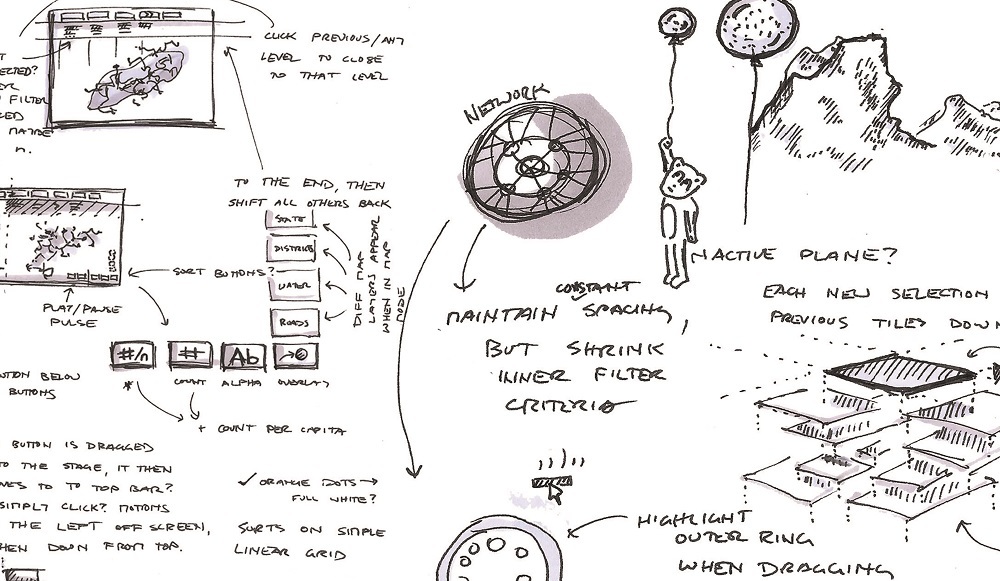 CLICK PREVIOUS/ANY
LEVEL TO CLOSE
TO THAT LEVEL
FILTER
n.
NETWORK
TO THE END, THEN
SHIFT ALL OTHERS BACK
STATE
DISTRICT
WATER
ROADS
DIFF MAP
LAYERS APPEAR
WHEN IN MAP
MODE
SORT BUTTONS?
PLAY/PAUSE
PULSE
#/n
#
Ab
*
COUNT
ALPHA
OVERLAY
+ COUNT PER CAPITA
BUTTON BELOW
BUTTONS
BUTTON IS DRAGGED
TO THE STAGE, IT THEN
TO TO TOP BAR?
SIMPLY CLICK? MOTIONS
THE LEFT OFF SCREEN,
THEN DOWN FROM TOP.
✓ ORANGE DOTS →
FULL WHITE?
SORTS ON SIMPLE
LINEAR GRID
CONSTANT
MAINTAIN SPACING,
BUT SHRINK
INNER FILTER
CRITERIA
INACTIVE PLANE?
EACH NEW SELECTION
PREVIOUS TILES DOWN
HIGHLIGHT
OUTER RING
WHEN DRAGGING